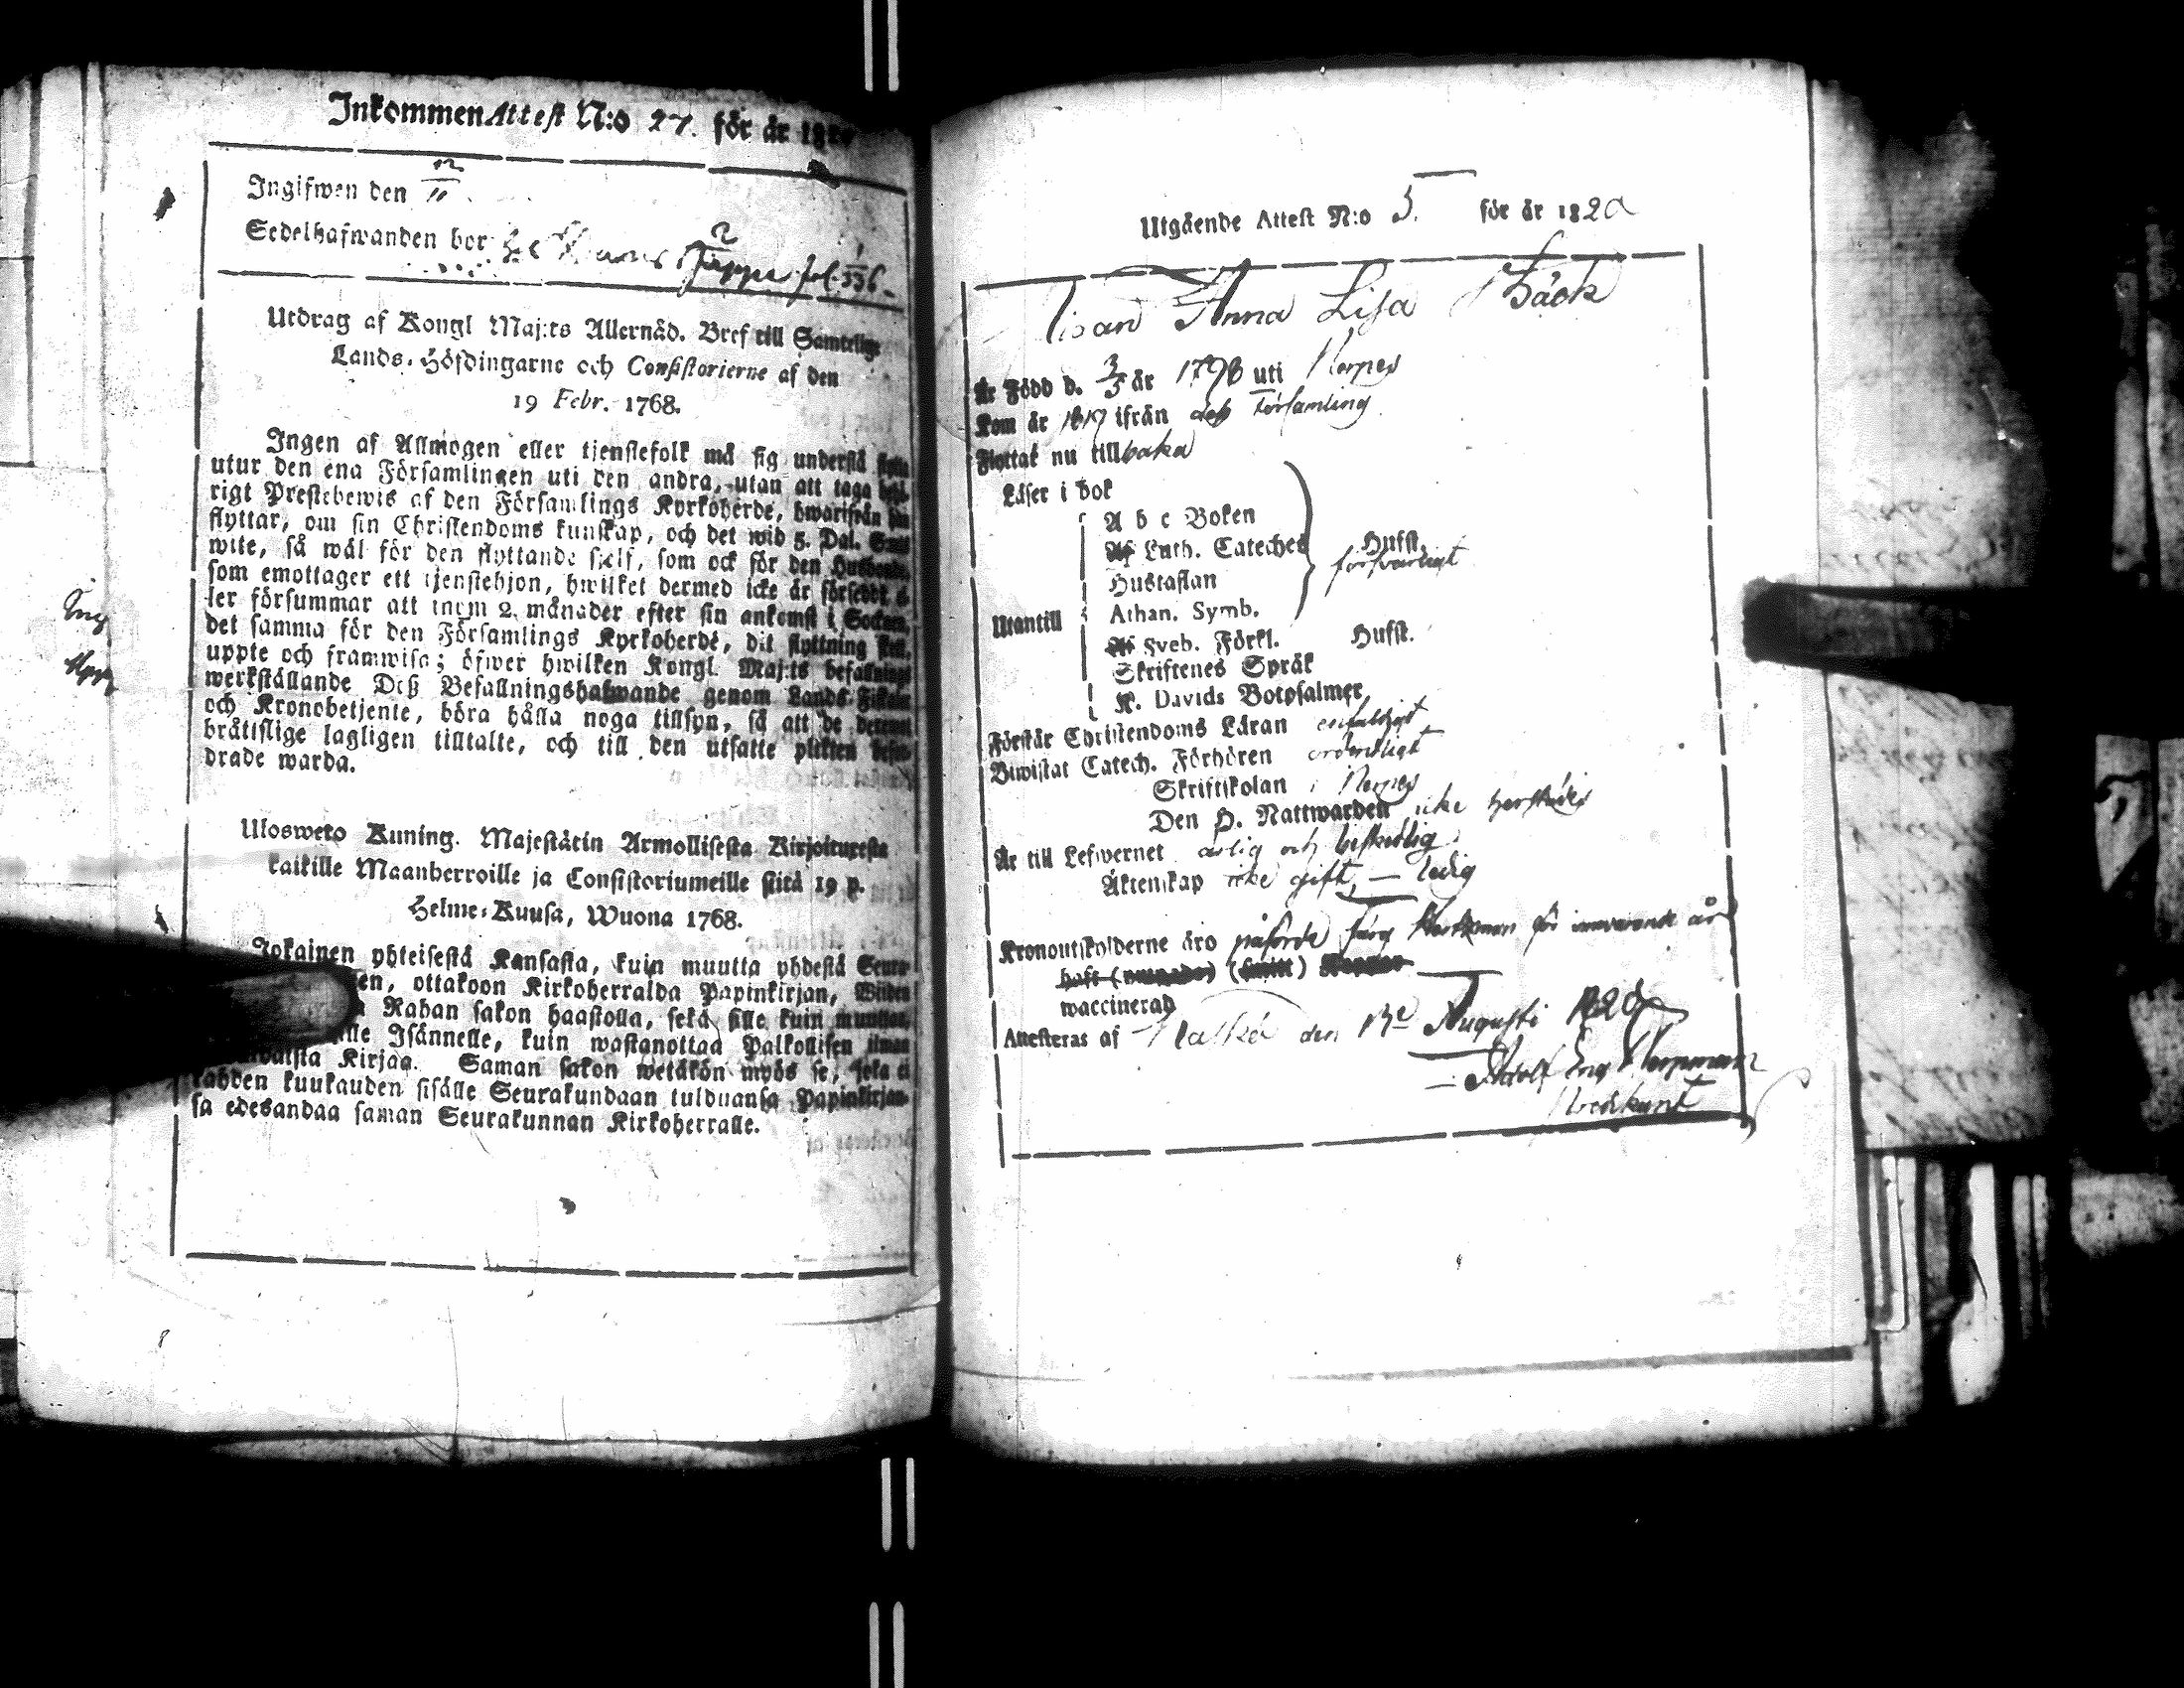 InkommenAttest N:o 27. för år 18
Ingifwen den 12/11.
Sedelhafwanden bor fol. 336
Utdrag af Kongl Maj:ts Allernåd. Bref till Samtelige
Lands-Höfdingarne och Consistorierne af den
19 Febr. 1768.
Ingen af Allmogen eller tjenstefolk må sig understå flytta
utur den ena Församlingen uti den andra, utan att taga behö-
rigt Prestebewis af den Församlings Kyrkoherde, hwarifrån han
flyttar, om sin Christendoms kunskap, och det wid 5. Dal. Smts
wite, så wäl för den flyttande sjelf, som ock för den Husbonde,
som emottager ett tjenstehjon, hwilket dermed icke är försedt, el-
ler försummar att inom 2. månader efter sin ankomst i Socken,
det samma för den Församlings Kyrkoherde, dit flyttning sker,
uppte och framwisa; öfwer hwilken Kongl. Maj:ts befallnings
werkställande Deß Befallningshafwande genom Lands-Fiskaler
och Kronobetjente, böra hålla noga tillsyn, så att de deremot
bråtislige lagligen tilltalte, och till den utsatte plikten befor-
drade warda.
Ulosweto Kuning. Majestätin Armollisesta Kirjoituxesta
kaikille Maanherroille ja Consistoriumeille siitä 19 p.
Helme-Kuusa, Wuona 1768.
Jokainen yhteisestä Kansasta, kuin muutta yhdestä Seura-
en, ottakoon Kirkoherralda Papinkirjan, Wiiden
Rahan sakon haastolla, sekä sille kuin muuttaa,
lle Isännelle, kuin wastanottaa Palkollisen ilman
Kirjaa. Saman sakon wetäkön myös se, joka ei
kahden kuukauden sisälle Seurakundaan tulduansa Papinkirjan-
sa edesandaa saman Seurakunnan Kirkoherralle.
Utgående Attest N:o 5. för år 1820
Pigan Anna Lisa Bäck
Är Född d. 3/3 år 1798 uti Nerpes
Kom år 1819 ifrån deß Församling
Flyttat nu tillbaka
Läser i bok
A b c Boken
Af Luth. Cateches Hufst.
försvarligt
Hustaflan
Athan. Symb.
Utantill
Af Sveb. Förkl. Hufst.
Skriftenes Språk
K. Davids Botpsalmer
Förstår Christendoms Läran enfaldigt
Biwistat Catech. Förhören ordentligt
Skriftskolan i Nerpes
Den H. Nattwarden icke härstädes
Är till Lefwernet ärlig och beskedlig
Äktenskap icke gift, — ledig
Kronoutskylderne äro påförde för innevarande år
haft (naturliga) (smitt) Koppor
waccinerad
Attesteras af den 13de Augusti 1820
Adolf Eng